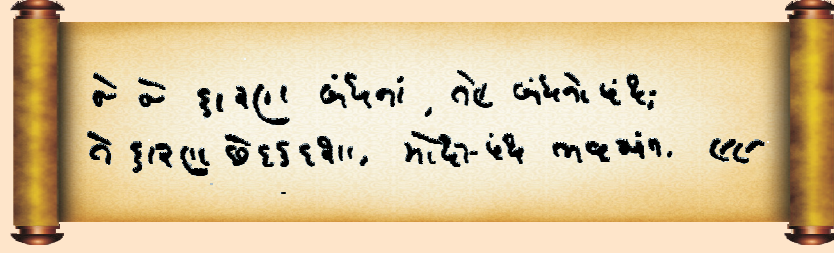 જે જે કારણ બંધનાં, તેહ બંધનો પંથ;
તે કારણ છેદક દશા, મોક્ષ-પંથ ભવઅંત. ૯૯